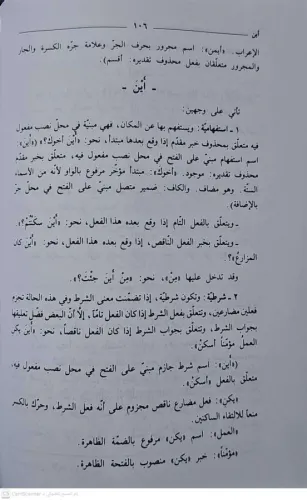 أين
١٠٦
الإعراب. «أيمن»: اسم مجرور بحرف الجرّ وعلامة جرّه الكسرة والجار
والمجرور متعلّقان بفعل محذوف تقديره: أقسم).
- أَيْنَ -
تأتي على وجهين:
١ - استفهاميّة: ويستفهم بها عن المكان، فهي مبنيّة في محل نصب مفعول
فيه متعلّق بمحذوف خبر مقدّم إذا وقع بعدها مبتدأ، نحو: «أَيْنَ أخوك؟» («أين»:
اسم استفهام مبنيّ على الفتح في محل نصب مفعول فيه، متعلق بخبر مقدّم
محذوف تقديره: موجود. «أخوك»: مبتدأ مؤخر مرفوع بالواو لأنه من الأسماء
الستّة. وهو مضاف. والكاف: ضمير متصل مبنيّ على الفتح في محل جرّ
بالإضافة).
ـ ويتعلّق بالفعل التّام إذا وقع بعده هذا الفعل، نحو: «أَيْنَ سكَنْتُمْ؟»،
ـ ويتعلّق بخبر الفعل النّاقص، إذا وقع بعده هذا الفعل، نحو: «أَيْنَ كان
المزارعُ؟».
وقد تدخل عليها «مِنْ»، نحو: «مِنْ أَيْنَ جئتَ؟».
٢ - شرطيّة: وتكون شرطيّة، إذا تضمّنت معنى الشرط وفي هذه الحالة تجزم
فعلين مضارعين، وتتعلّق بفعل الشرط إذا كان الفعل تامّاً، إلّا أنّ البعض فضّل تعليقها
بجواب الشرط، وتتعلّق بجواب الشرط إذا كان الفعل ناقصاً، نحو: «أَيْنَ يكن
العمل مؤمّناً أسكنْ».
(«أين»: اسم شرط جازم مبنيّ على الفتح في محل نصب مفعول فيه،
متعلّق بالفعل «أسكن».
«يكن»: فعل مضارع ناقص مجزوم على أنّه فعل الشرط، وحرّك بالكسر
منعاً لالتقاء الساكنين.
«العمل»: اسم «يكن» مرفوع بالضمّة الظاهرة.
«مؤمّناً»: خبر «يكن» منصوب بالفتحة الظاهرة.